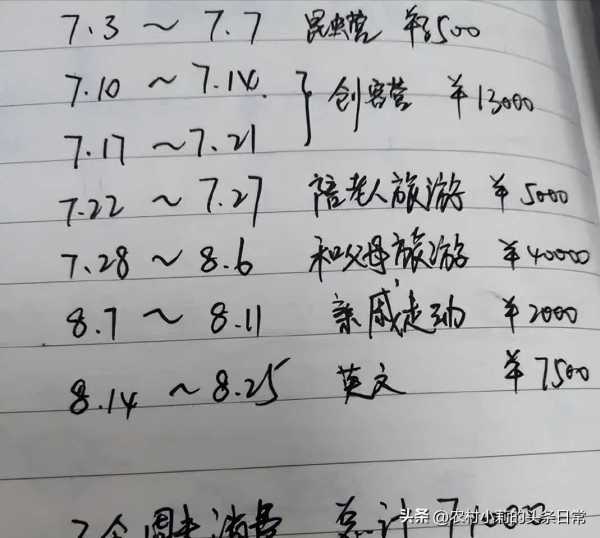 7.3 ~ 7.7 昆虫营 ¥3500
7.10 ~ 7.14
创客营 ¥13000
7.17 ~ 7.21
7.22 ~ 7.27 陪老人旅游 ¥5000
7.28 ~ 8.6 和父母旅游 ¥40000
8.7 ~ 8.11 亲戚走动 ¥2000
8.14 ~ 8.25 英文 ¥7500
个周末消费 总计
头条 @农村小莉的头条日常